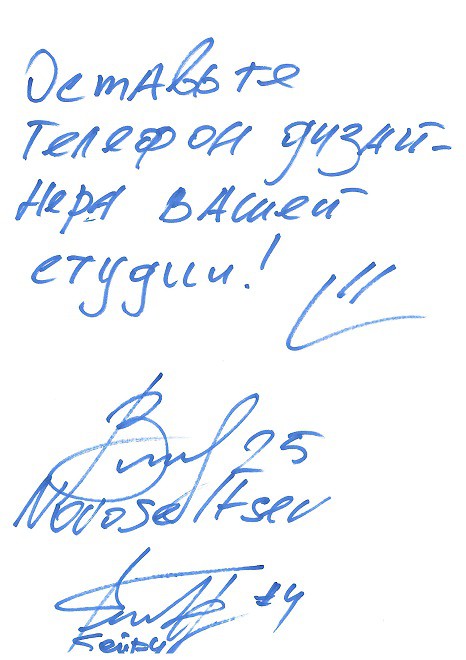 Оставьте
телефон дизай-
нера вашей
студии!
25
Novoseltsev
#4